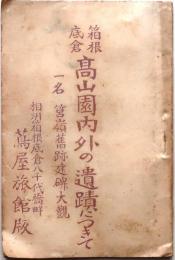 箱根
底倉
髙山園内外の遺蹟につきて
一名 筥嶺舊跡建碑大觀
相州箱根底倉八千代橋畔
蔦屋旅館版